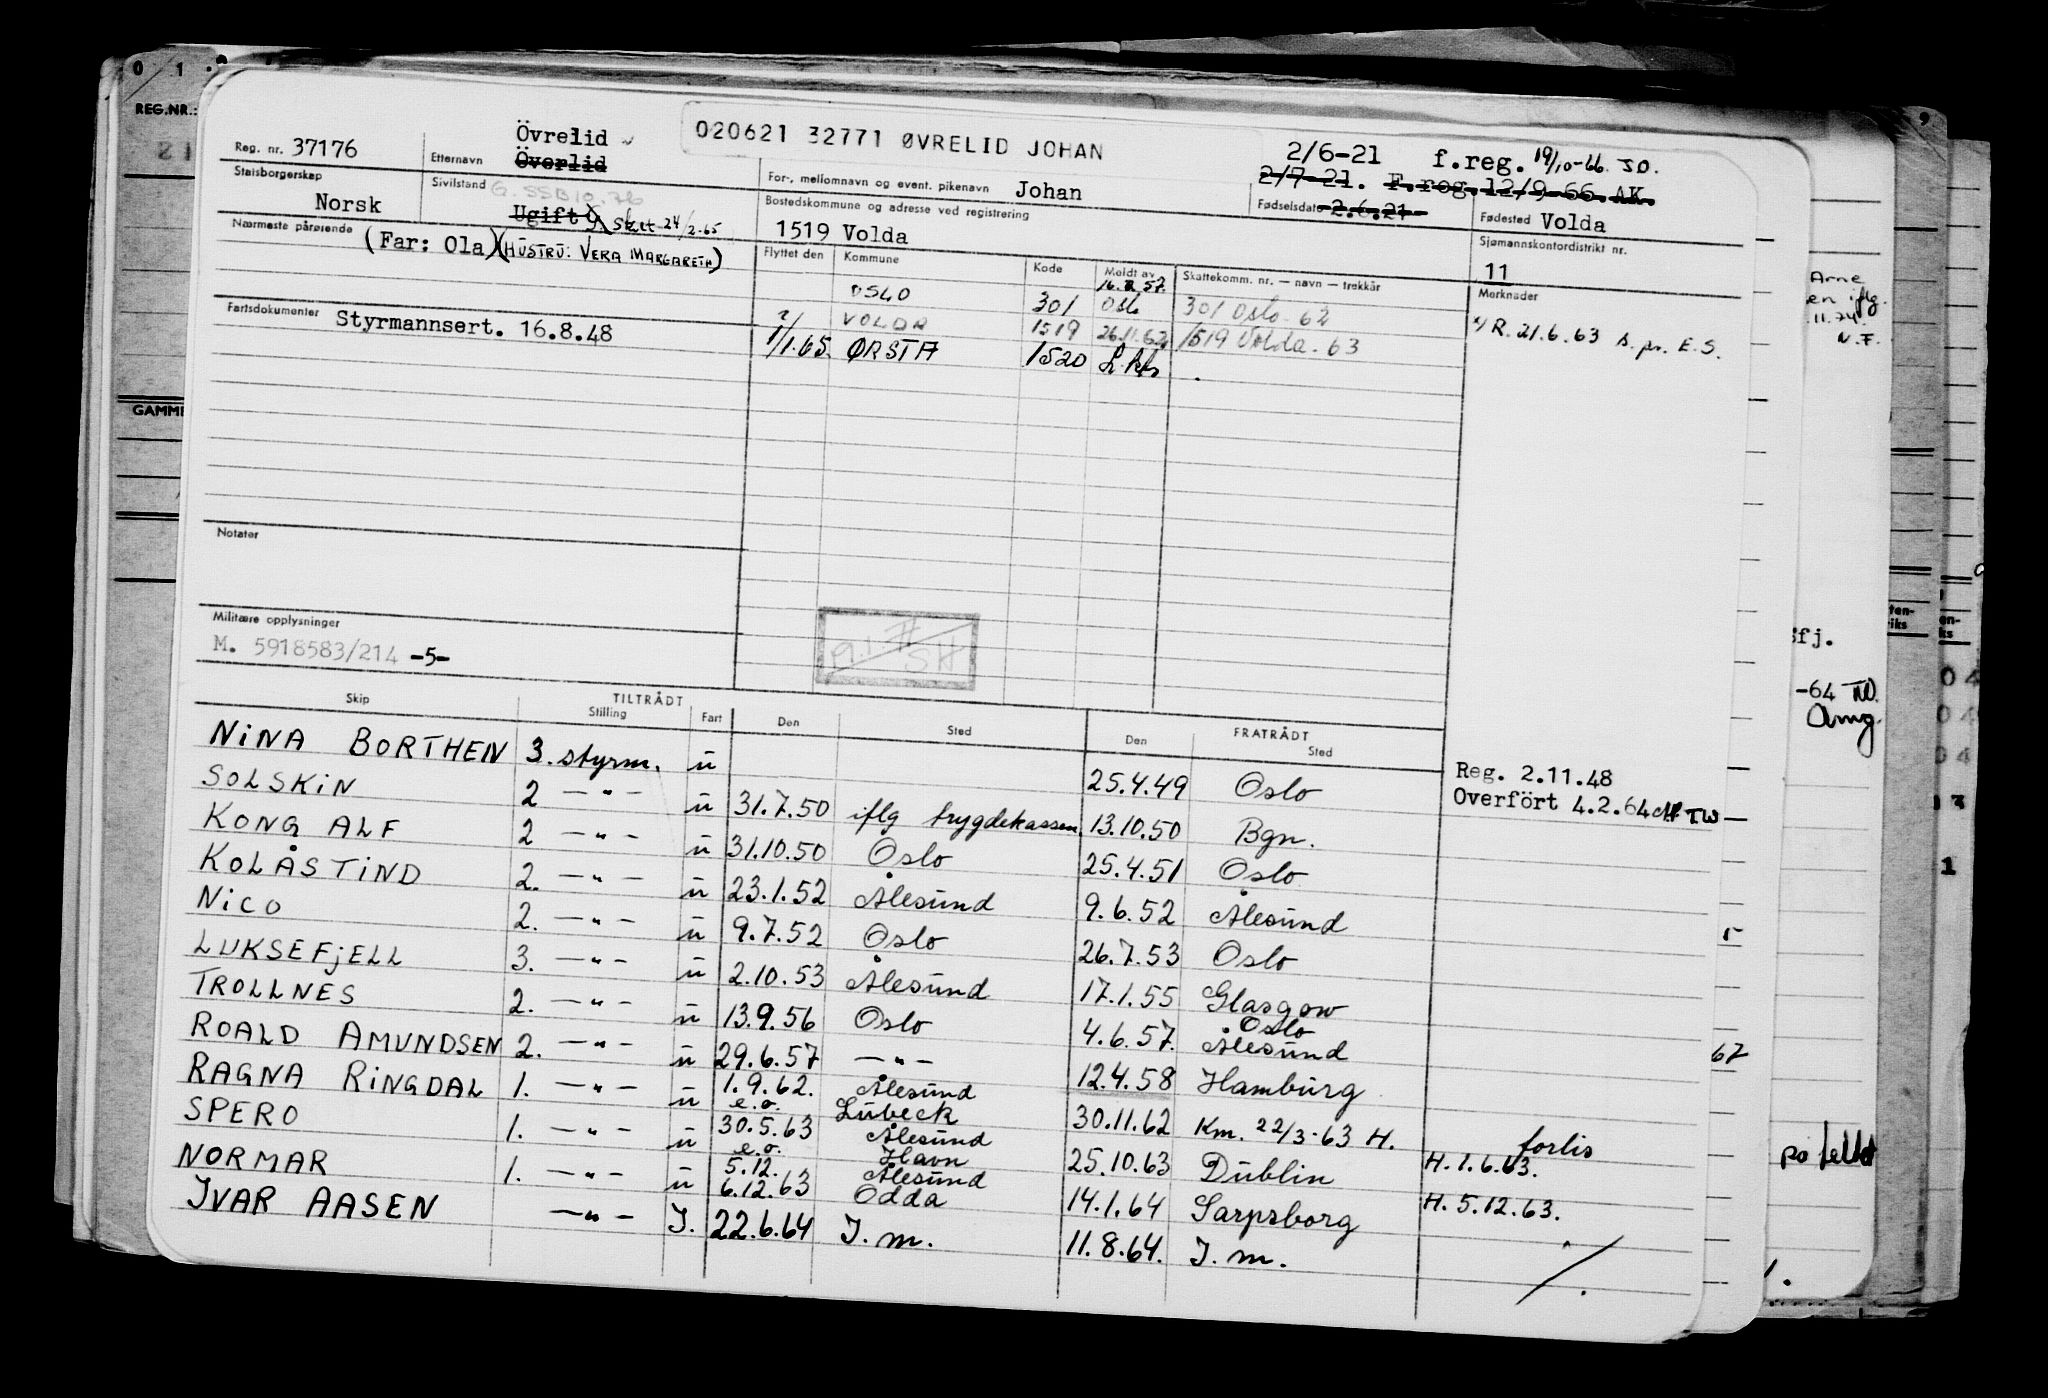 020621 32771 ØVRELID JOHAN
Reg. nr. 37176
Etternavn Övrelid
Överlid
For-, mellomnavn og event. pikenavn Johan
2/6-21 f.reg. 19/10-66 JD.
2/7-21. F.reg.12/9-66 AK.
Fødselsdato 2.6.21
Fødested Volda
Statsborgerskap Norsk
Sivilstand G. SSB10.76
Ugift G Skat 24/2-65
Bostedskommune og adresse ved registrering
1519 Volda
Sjømannskontordistrikt nr.
11
Nærmeste pårørende (Far: Ola) (HUSTRU: VERA MARGARETH)
Flyttet den Kommune Kode Meldt av Skattekomm. nr. — navn — trekkår
OSLO 301 Oslo 301 Oslo 62
VOLDA 1519 26.11.62 1519 Volda. 63
1/1.65. ØRSTA 1520
Merknader
R. 21.6.63 s. pr. E.S.
Fartsdokumenter Styrmannsert. 16.8.48
Notater
Militære opplysninger
M. 5918583/214 -5-
TILTRÅDT FRATRÅDT
Skip Stilling Fart Den Sted Den Sted
NINA BORTHEN 3. styrm. u 25.4.49 Oslo Reg. 2.11.48
SOLSKIN 2 —"— u 31.7.50 iflg trygdekassen 13.10.50 Bgn. Overfört 4.2.64 TW
KONG ALF 2 —"— u 31.10.50 Oslo 25.4.51 Oslo
KOLÅSTIND 2. —"— u 23.1.52 Ålesund 9.6.52 Ålesund
NICO 2. —"— u 9.7.52 Oslo 26.7.53 Oslo
LUKSEFJELL 3. —"— u 2.10.53 Ålesund 17.1.55 Glasgow
TROLLNES 2. —"— u 13.9.56 Oslo 4.6.57. Oslo Ålesund
ROALD AMUNDSEN 2. —"— u 29.6.57 —"— 12.4.58 Hamburg
RAGNA RINGDAL 1. —"— u 1.9.62. e.o. Ålesund Lübeck 30.11.62 Km. 22/3-63 H.
SPERO 1. —"— u 30.5.63 e.o. Ålesund Havn 25.10.63 Dublin forlis H. 1.6.63.
NORMAR 1. —"— u 5.12. 6.12.63 Ålesund Odda 14.1.64 Sarpsborg H. 5.12.63.
IVAR AASEN —"— I. 22.6.64 I.m. 11.8.64. I.m.
REG.NR.:
Arne
11.74
N.F.
-64
67